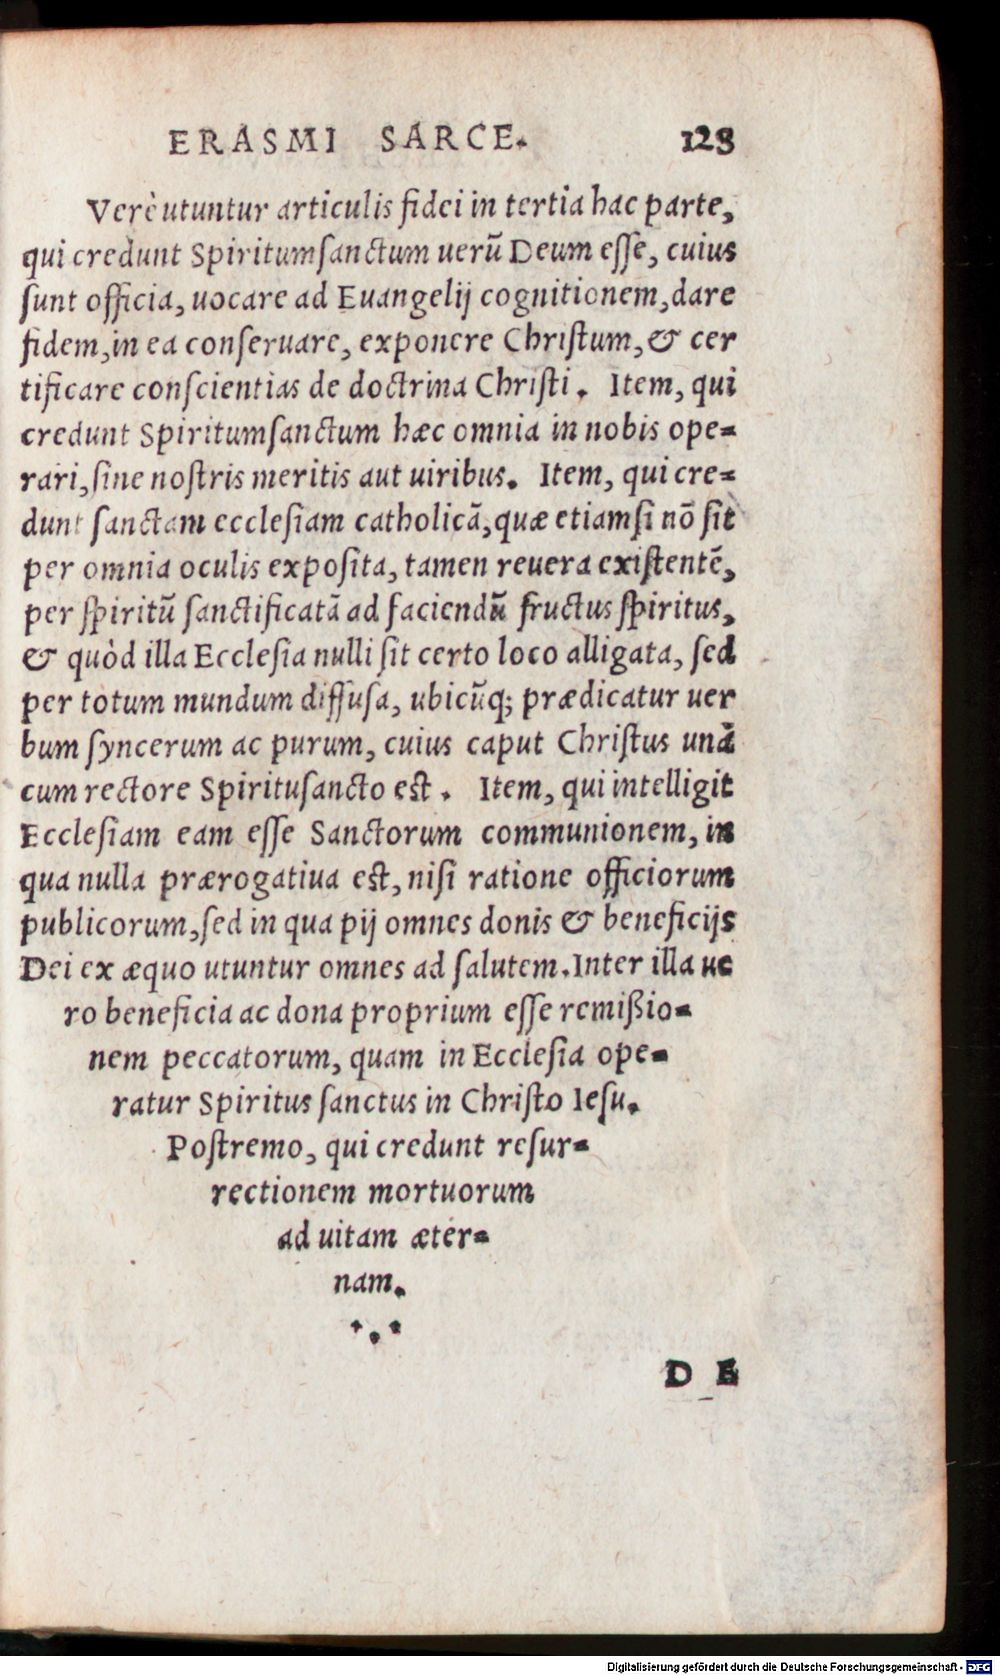 ERASMI SARCE. 128
Verè utuntur articulis fidei in tertia hac parte,
qui credunt Spiritumſanctum uerũ Deum eſſe, cuius
ſunt officia, uocare ad Euangelij cognitionem, dare
fidem, in ea conſeruare, exponere Chriſtum, & cer
tificare conſcientias de doctrina Chriſti. Item, qui
credunt Spiritumſanctum hæc omnia in nobis ope-
rari, ſine noſtris meritis aut uiribus. Item, qui cre-
dunt ſanctam eccleſiam catholicã, quæ etiamſi nõ ſit
per omnia oculis expoſita, tamen reuera exiſtentẽ,
per ſpiritũ ſanctificatã ad faciendũ fructus ſpiritus,
& quòd illa Eccleſia nulli ſit certo loco alligata, ſed
per totum mundum diffuſa, ubicũq; prædicatur uer
bum ſyncerum ac purum, cuius caput Chriſtus unà
cum rectore Spirituſancto eſt. Item, qui intelligit
Eccleſiam eam eſſe Sanctorum communionem, in
qua nulla prærogatiua eſt, niſi ratione officiorum
publicorum, ſed in qua pij omnes donis & beneficijs
Dei ex æquo utuntur omnes ad ſalutem. Inter illa ue
ro beneficia ac dona proprium eſſe remißio-
nem peccatorum, quam in Eccleſia ope-
ratur Spiritus ſanctus in Chriſto Ieſu.
Poſtremo, qui credunt reſur-
rectionem mortuorum
ad uitam æter-
nam.
DE
Digitalisierung gefördert durch die Deutsche Forschungsgemeinschaft - DFG